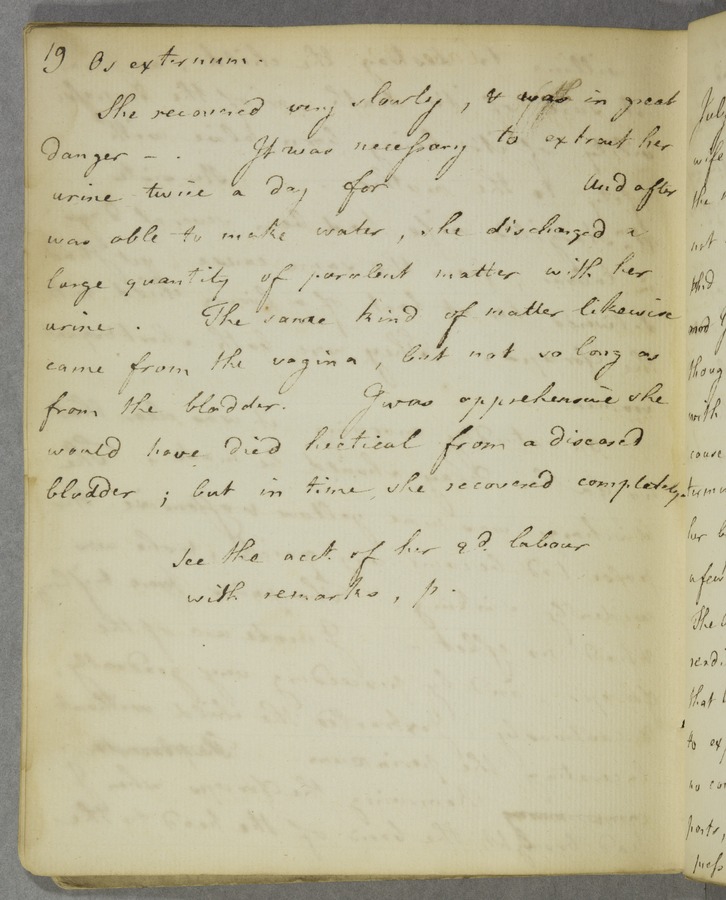 19 Os externum.
She recovered very slowly, & was in great
danger - . It was necessary to extract her
urine twice a day for And after
was able to make water, she discharged a
large quantity of purulent matter with her
urine. The same kind of matter likewise
came from the vagina, but not so long as
from the bladder. I was apprehensive she
would have died hectical from a diseased
bladder; but in time she recovered completely.
see the acct. of her 2d. labour
with remarks, p.
July
wife
the
not
third
mod
thoug
with
cause
her b
a few
The
that
to ex
no
parts,